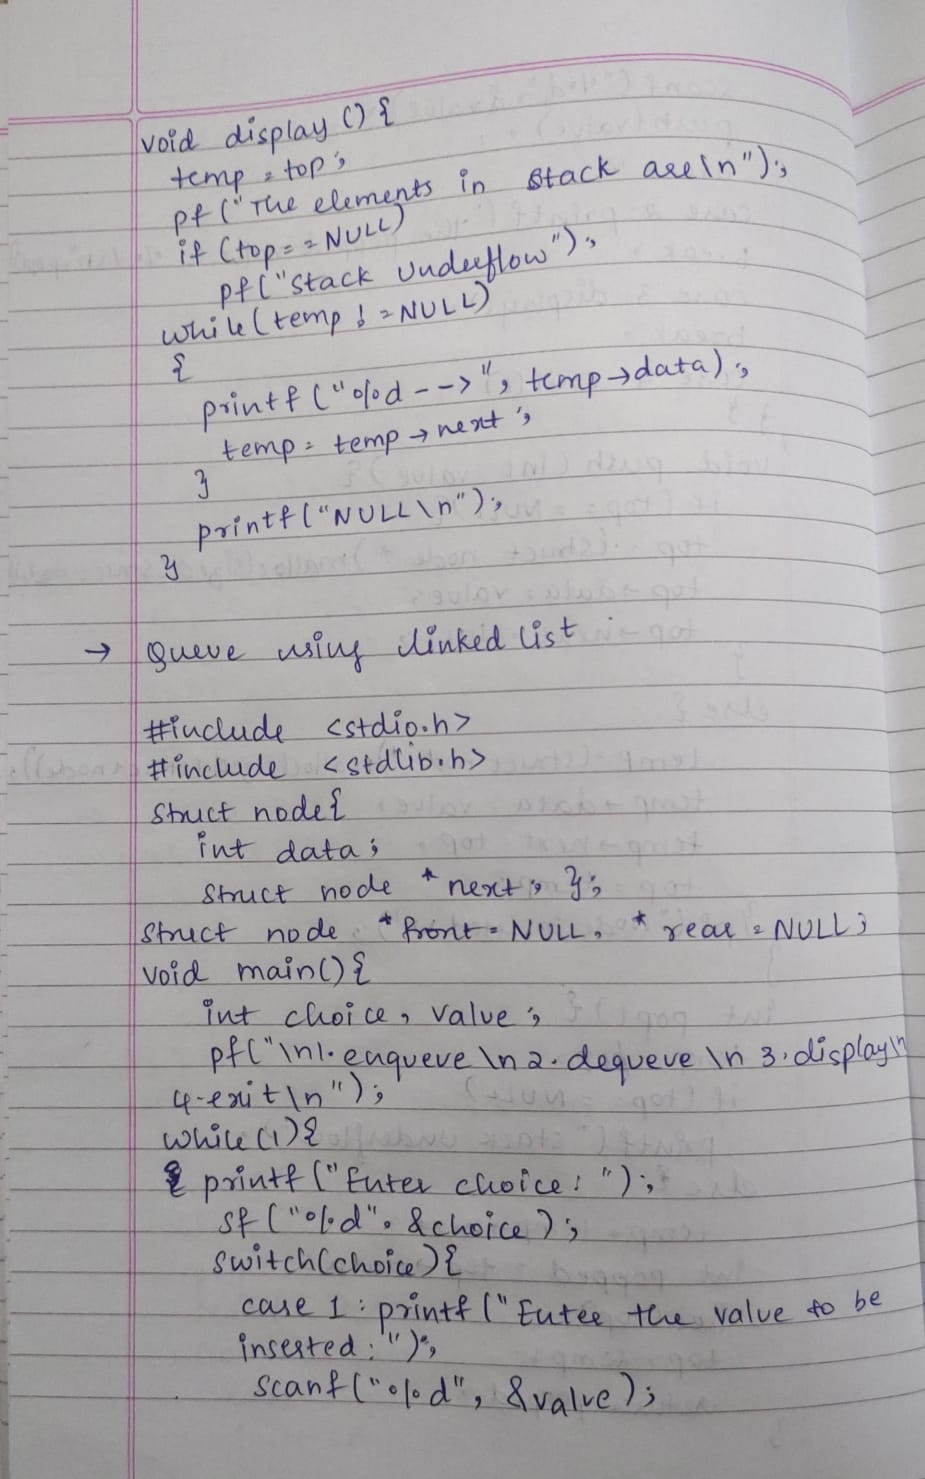 void display () {
temp = top;
pf ("The elements in stack are\n");
if (top == NULL)
pf ("Stack Underflow");
while (temp != NULL)
{
printf ("%d -->", temp→data);
temp = temp→next;
}
printf ("NULL\n");
}
→ Queue using linked list
#include <stdio.h>
#include <stdlib.h>
struct node{
int data;
struct node *next; };
struct node *front = NULL, *rear = NULL;
void main() {
int choice, value;
pf("\n1. enqueue \n 2. dequeue \n 3. display\n
4-exit\n");
while (1) {
printf ("Enter choice: ");
sf ("%d", &choice);
switch(choice) {
case 1: printf ("Enter the value to be
inserted: ");
scanf ("%d", &value);